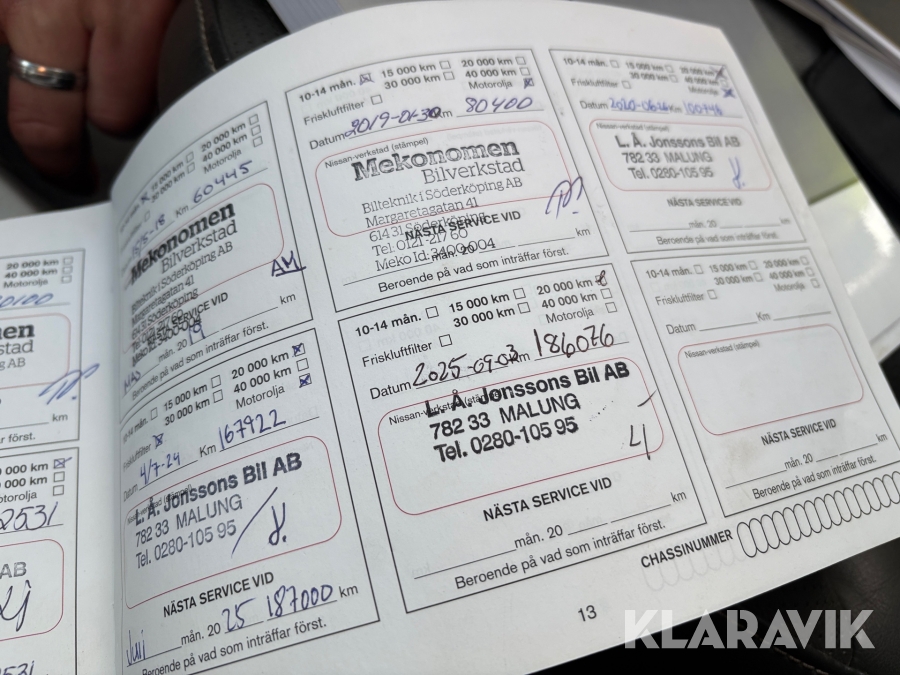 20 000 km
40 000 km
Motorolja
km
ör först.
000 km
000 km
otorolja
2531
AB
15 000 km
20 000 km
30 000 km
40 000 km
Motorolja
Km 60445
Mekonomen
Bilverkstad
Biltekniki Söderköping AB
NÄSTA SERVICE VID
AM
mån. 20 19 km
Beroende på vad som inträffar först.
10-14 mån. 15 000 km 20 000 km
30 000 km 40 000 km
Friskluftfilter Motorolja
Datum 4/7-24 Km 167922
L. Å. Jonssons Bil AB
782 33 MALUNG
Tel. 0280-105 95
NÄSTA SERVICE VID
Juli mån. 20 25 187000 km
Beroende på vad som inträffar först.
10-14 mån. 15 000 km 20 000 km
30 000 km 40 000 km
Friskluftfilter Motorolja
Datum 2019-01-30 80400
Nissan-verkstad (stämpel)
Mekonomen
Bilverkstad
Biltekniki Söderköping AB
Margaretagatan 41
614 31 Söderköping
NÄSTA SERVICE VID
Tel: 0121-217 60
Meko Id: 3400-004
mån. 20 km
Beroende på vad som inträffar först.
10-14 mån. 15 000 km 20 000 km
30 000 km 40 000 km
Friskluftfilter Motorolja
Datum 2025-09-03 186076
Nissan-verkstad (stämpel)
L. Å. Jonssons Bil AB
782 33 MALUNG
Tel. 0280-105 95
NÄSTA SERVICE VID
mån. 20 km
Beroende på vad som inträffar först.
10-14 mån. 15 000 km 20 000 km
30 000 km 40 000 km
Friskluftfilter Motorolja
Datum Km
Nissan-verkstad (stämpel)
L. Å. Jonssons Bil AB
782 33 MALUNG
Tel. 0280-105 95
NÄSTA SERVICE VID
mån. 20 km
Beroende på vad som inträffar först.
10-14 mån. 15 000 km 20 000 km
30 000 km 40 000 km
Friskluftfilter Motorolja
Datum Km
Nissan-verkstad (stämpel)
NÄSTA SERVICE VID
mån. 20 km
Beroende på vad som inträffar först.
CHASSINUMMER
13
KLARAVIK